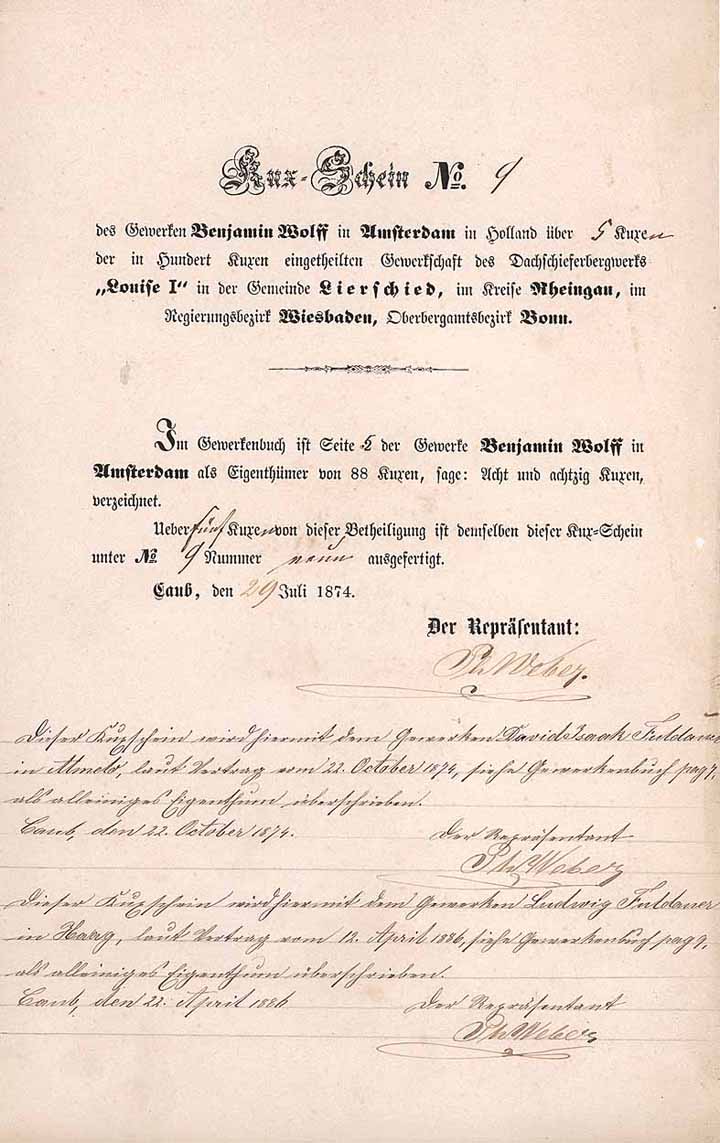 Kux-Schein No. 9
des Gewerken Benjamin Wolff in Amsterdam in Holland über 5 Kuxen
der in Hundert Kuxen eingetheilten Gewerkschaft des Dachschieferbergwerks
„Louise I“ in der Gemeinde Lierschied, im Kreise Rheingau, im
Regierungsbezirk Wiesbaden, Oberbergamtsbezirk Bonn.
Im Gewerkenbuch ist Seite 5 der Gewerke Benjamin Wolff in
Amsterdam als Eigenthümer von 88 Kuxen, sage: Acht und achtzig Kuxen,
verzeichnet.
Ueber fünf Kuxen von dieser Betheiligung ist demselben dieser Kux-Schein
unter No. 9 Nummer neun ausgefertigt.
Caub, den 29 Juli 1874.
Der Repräsentant:
Ph Weber.
Dieser Kuxschein wird hiermit dem Gewerken David Isaak Fuldauer
in Almelo, laut Vertrag vom 22. October 1874, siehe Gewerkenbuch pag 7,
als alleiniges Eigenthum überschrieben.
Caub, den 22. October 1874.
Der Repräsentant
Ph Weber
Dieser Kuxschein wird hiermit dem Gewerken Ludwig Fuldauer
in Haag, laut Vertrag vom 12. April 1886, siehe Gewerkenbuch pag 9,
als alleiniges Eigenthum überschrieben.
Caub, den 22. April 1886
Der Repräsentant
Ph Weber